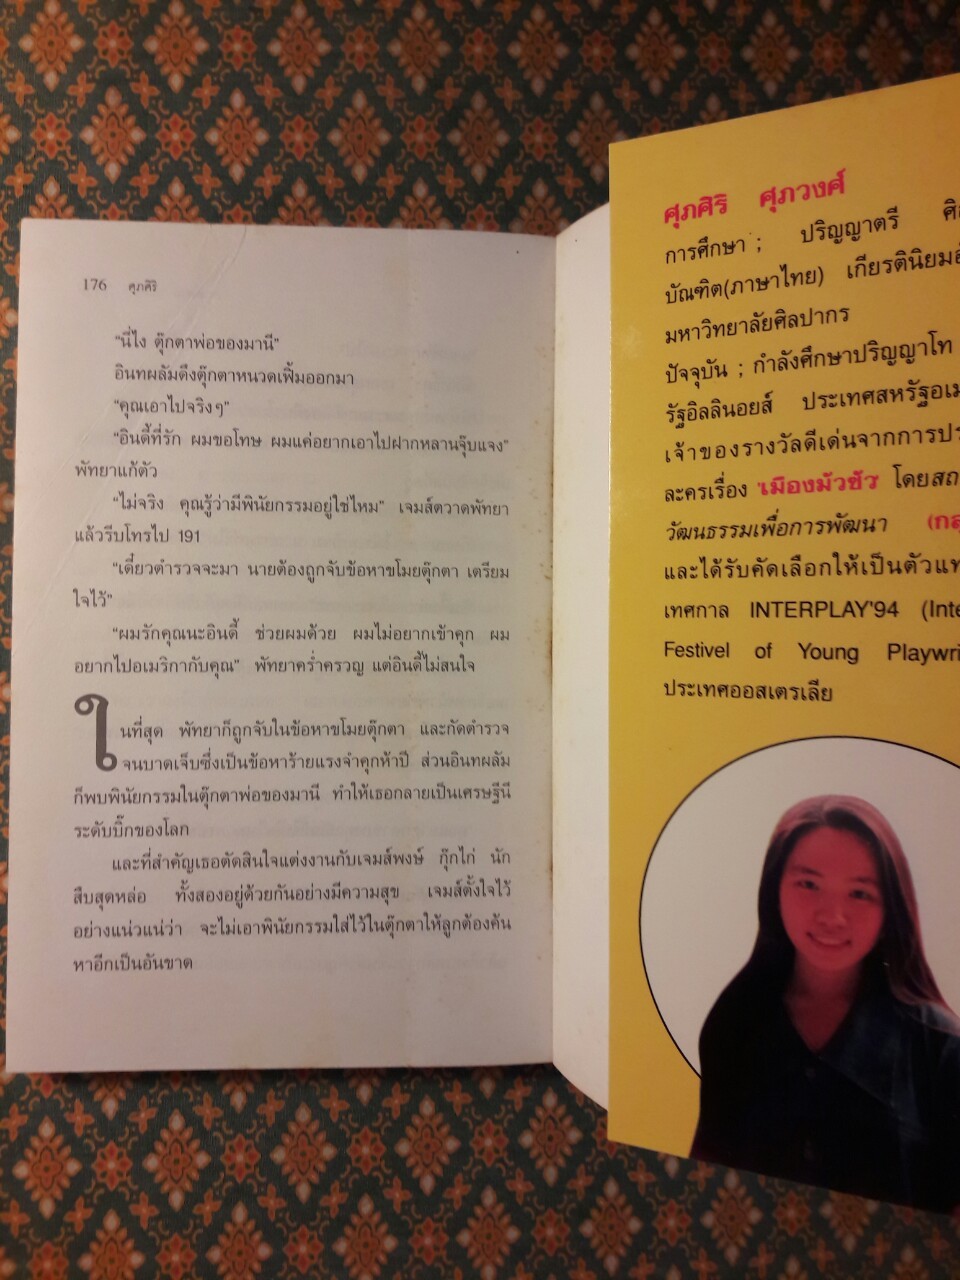 176 ศุภศิริ
“นี่ไง ตุ๊กตาพ่อของมานี”
อินทผลัมดึงตุ๊กตาหนวดเฟิ้มออกมา
“คุณเอาไปจริงๆ”
“อินดี้ที่รัก ผมขอโทษ ผมแค่อยากเอาไปฝากหลานจุ๊บแจง”
พัทยาแก้ตัว
“ไม่จริง คุณรู้ว่ามีพินัยกรรมอยู่ใช่ไหม” เจมส์ตวาดพัทยา
แล้วรีบโทรไป 191
“เดี๋ยวตำรวจจะมา นายต้องถูกจับข้อหาขโมยตุ๊กตา เตรียม
ใจไว้”
“ผมรักคุณนะอินดี้ ช่วยผมด้วย ผมไม่อยากเข้าคุก ผม
อยากไปอเมริกากับคุณ” พัทยาคร่ำครวญ แต่อินดี้ไม่สนใจ
ในที่สุด พัทยาก็ถูกจับในข้อหาขโมยตุ๊กตา และกัดตำรวจ
จนบาดเจ็บซึ่งเป็นข้อหาร้ายแรงจำคุกห้าปี ส่วนอินทผลัม
ก็พบพินัยกรรมในตุ๊กตาพ่อของมานี ทำให้เธอกลายเป็นเศรษฐีนี
ระดับบิ๊กของโลก
และที่สำคัญเธอตัดสินใจแต่งงานกับเจมส์พงษ์ กุ๊กไก่ นัก
สืบสุดหล่อ ทั้งสองอยู่ด้วยกันอย่างมีความสุข เจมส์ตั้งใจไว้
อย่างแน่วแน่ว่า จะไม่เอาพินัยกรรมใส่ไว้ในตุ๊กตาให้ลูกต้องค้น
หาอีกเป็นอันขาด
ศุภศิริ ศุภวงศ์
การศึกษา ; ปริญญาตรี
บัณฑิต(ภาษาไทย) เกียรตินิยม
มหาวิทยาลัยศิลปากร
ปัจจุบัน ; กำลังศึกษาปริญญาโท
รัฐอิลลินอยส์ ประเทศสหรัฐอเม
เจ้าของรางวัลดีเด่นจากการปร
ละครเรื่อง 'เมืองมัวซัว' โดยสถ
วัฒนธรรมเพื่อการพัฒนา
และได้รับคัดเลือกให้เป็นตัวแท
เทศกาล INTERPLAY'94 (Inte
Festivel of Young Playwri
ประเทศออสเตรเลีย